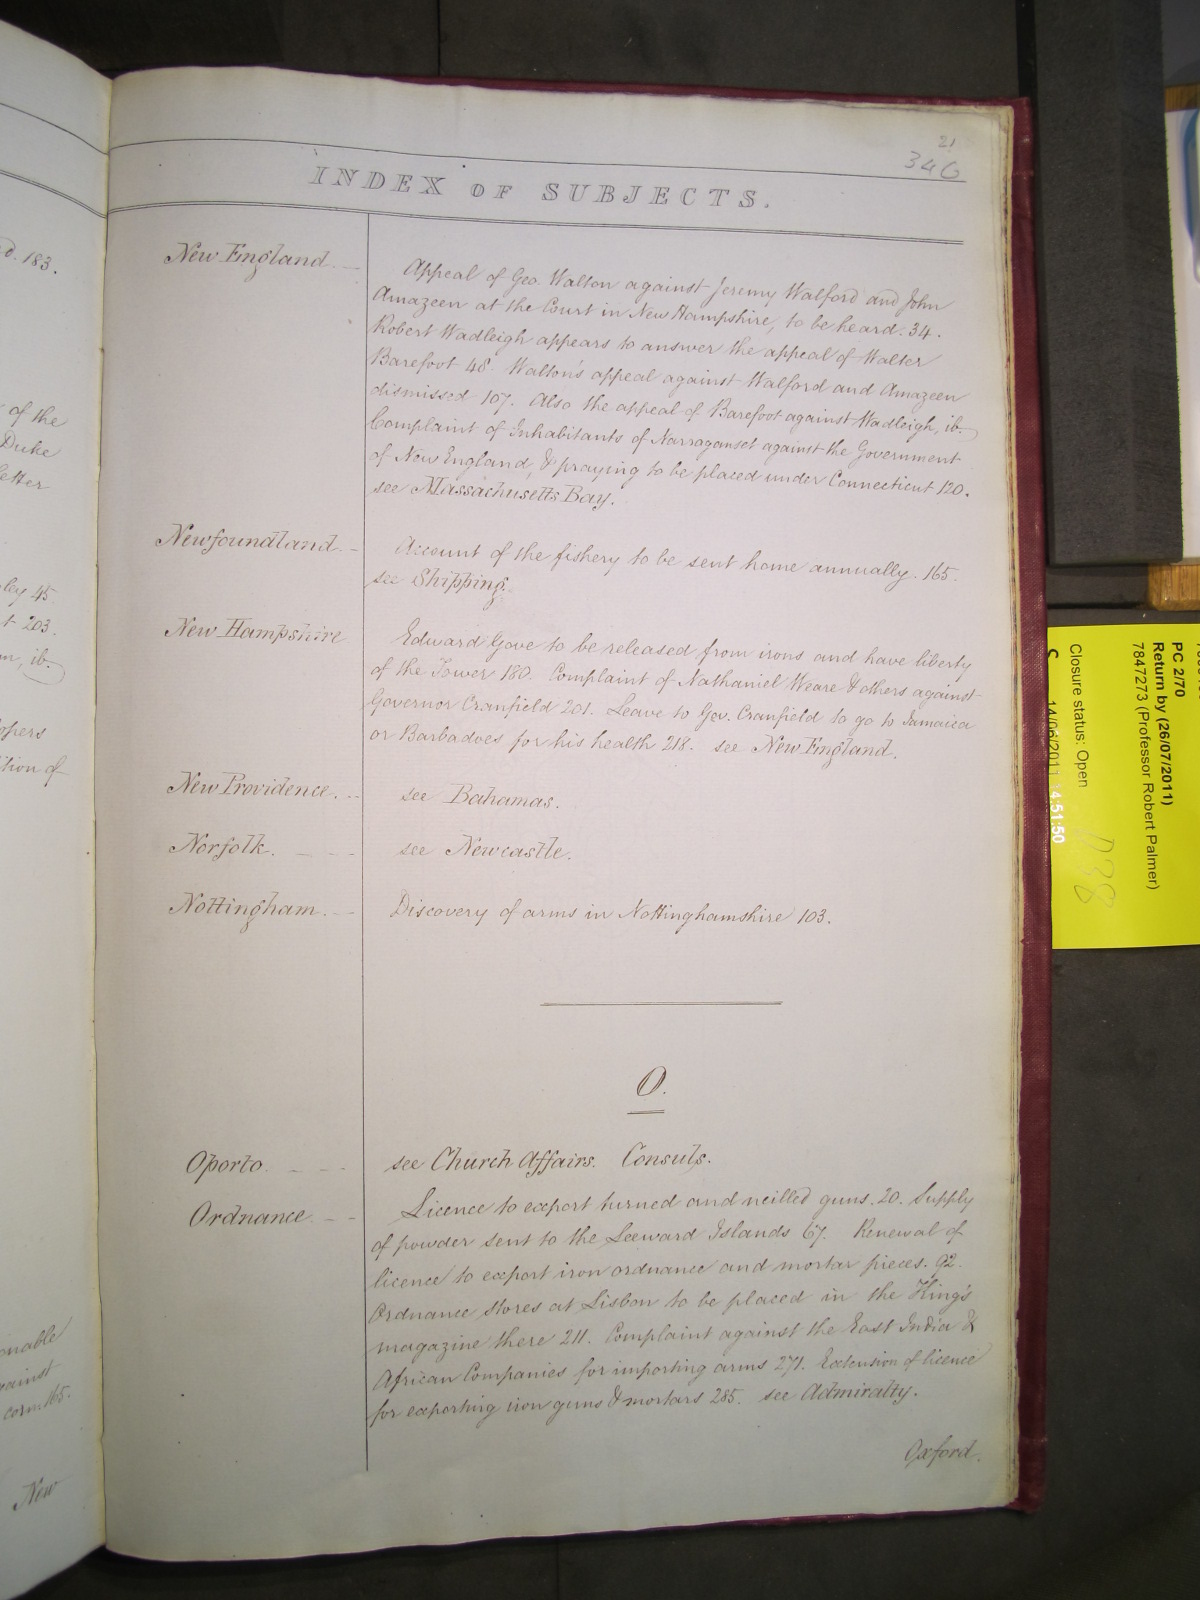 21
346
INDEX OF SUBJECTS.
New England.
Appeal of Geo. Walton against Jeremy Walford and John
Amazeen at the Court in New Hampshire, to be heard. 34.
Robert Wadleigh appears to answer the appeal of Walter
Barefoot 48. Walton's appeal against Walford and Amazeen
dismissed 107. Also the appeal of Barefoot against Wadleigh, ib.
Complaint of Inhabitants of Narraganset against the Government
of New England, & praying to be placed under Connecticut 120.
see Massachusetts Bay.
Newfoundland.
Account of the fishery to be sent home annually. 165.
see Shipping.
New Hampshire
Edward Gove to be released from irons and have liberty
of the Tower 180. Complaint of Nathaniel Weare & others against
Governor Cranfield 201. Leave to Gov. Cranfield to go to Jamaica
or Barbadoes for his health 218. see New England.
New Providence. see Bahamas.
Norfolk. see Newcastle.
Nottingham. Discovery of arms in Nottinghamshire 103.
O.
Oporto. see Church Affairs. Consuls.
Ordnance
Licence to export turned and neilled guns. 20. Supply
of powder sent to the Leeward Islands 67. Renewal of
licence to export iron ordnance and mortar pieces. 92.
Ordnance stores at Lisbon to be placed in the King's
magazine there 211. Complaint against the East India &
African Companies for importing arms 271. Extension of licence
for exporting iron guns & mortars 285. see Admiralty.
Oxford.
183.
of the
Duke
etter
ley 45
t 203.
ib.
ppers
tion of
onable
ainst
corn. 165.
New
PC 2/70
Return by (26/07/2011)
7847273 (Professor Robert Palmer)
Closure status: Open
14/06/2011 14:51:50
D38